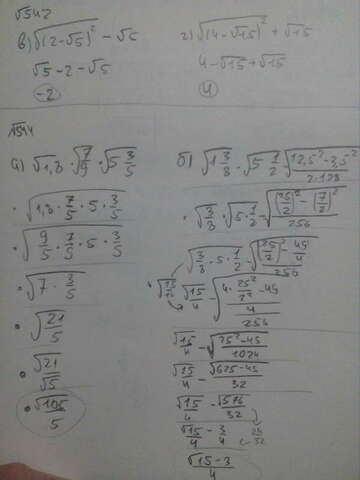 √542
в) √(2-√5)² - √5
√5-2-√5
-2
г) √(4-√15)² + √15
4-√15+√15
4
√544
а) √1,8 · √7/9 · √5 3/5
· √1,8 · 7/5 · 5 · 3/5
· √9/5 · 7/5 · 5 · 3/5
· √7 · 3/5
· √21/5
· √21/√5
· √105/5
б) √1 3/8 · √5 1/2 - √12,5²-3,5²/2·128
· √3/8 · √5·1/2 - √(25/2)² - (7/2)²/256
√3/8 · 5 · 1/2 - √(25/2)² - 49/4/256
√15/16 √15/4 - √4 · 25²/2² - 49/4/256
√15/4 - √25²-49/1024
√15/4 - √625-49/32
√15/4 - √576/32
√15/4 - 3/4 24/32
√15-3/4